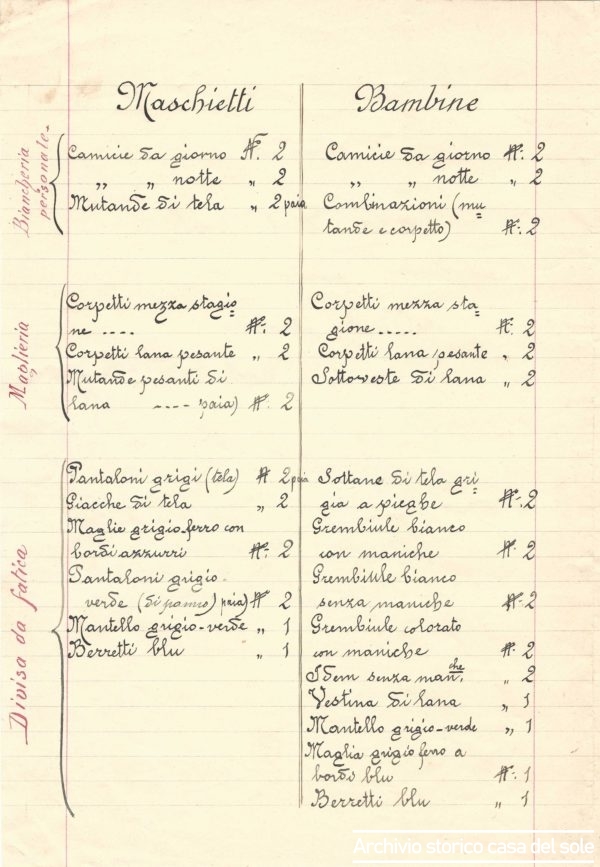 Maschietti
Biancheria
personale-
Camicie da giorno N. 2
„ „ notte „ 2
Mutande di tela „ 2 paia
Maglieria
Corpetti mezza stagio=
ne .... N. 2
Corpetti lana pesante „ 2
Mutande pesanti di
lana .... paia) N. 2
Divisa da fatica
Pantaloni grigi (tela) N 2 paia
Giacche di tela „ 2
Maglie grigio-ferro con
bordi azzurri N. 2
Pantaloni grigio-
verde (di panno) paia) N 2
Mantello grigio-verde „ 1
Berretti blu „ 1
Bambine
Camicie da giorno N. 2
„ „ notte „ 2
Combinazioni (mu=
tande e corpetto) N. 2
Corpetti mezza sta=
gione ..... N. 2
Corpetti lana pesante „ 2
Sottoveste di lana „ 2
Sottane di tela gri=
gia a pieghe N. 2
Grembiule bianco
con maniche N. 2
Grembiule bianco
senza maniche N. 2
Grembiule colorato
con maniche N. 2
Idem senza maniche „ 2
Vestina di lana „ 1
Mantello grigio-verde „ 1
Maglia grigio ferro a
bordi blu N. 1
Berretti blu „ 1
Archivio storico casa del sole